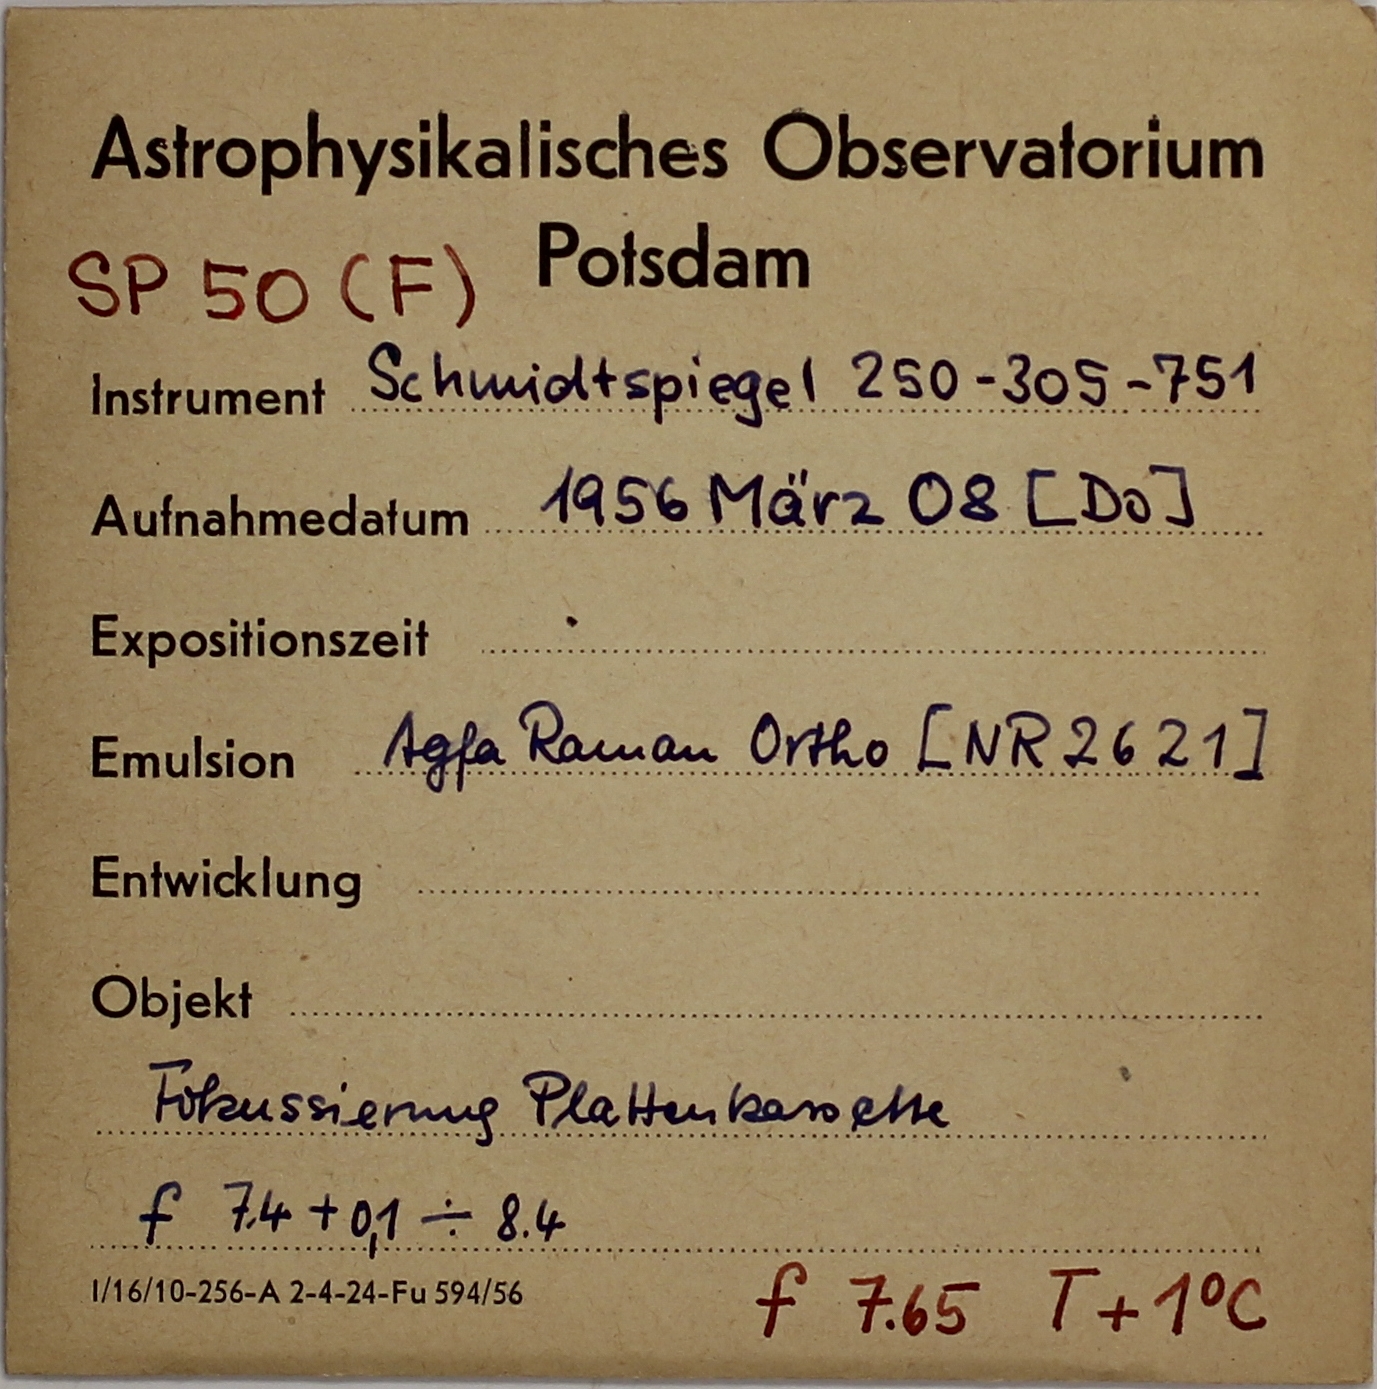 Astrophysikalisches Observatorium
Potsdam
SP 50 (F)
Instrument Schmidtspiegel 250-305-751
Aufnahmedatum 1956 März 08 [Do]
Expositionszeit
Emulsion Agfa Raman Ortho [NR 2621]
Entwicklung
Objekt
Fokussierung Plattenkassette
f 7.4 + 0,1 ÷ 8.4
I/16/10-256-A 2-4-24-Fu 594/56
f 7.65 T + 1°C